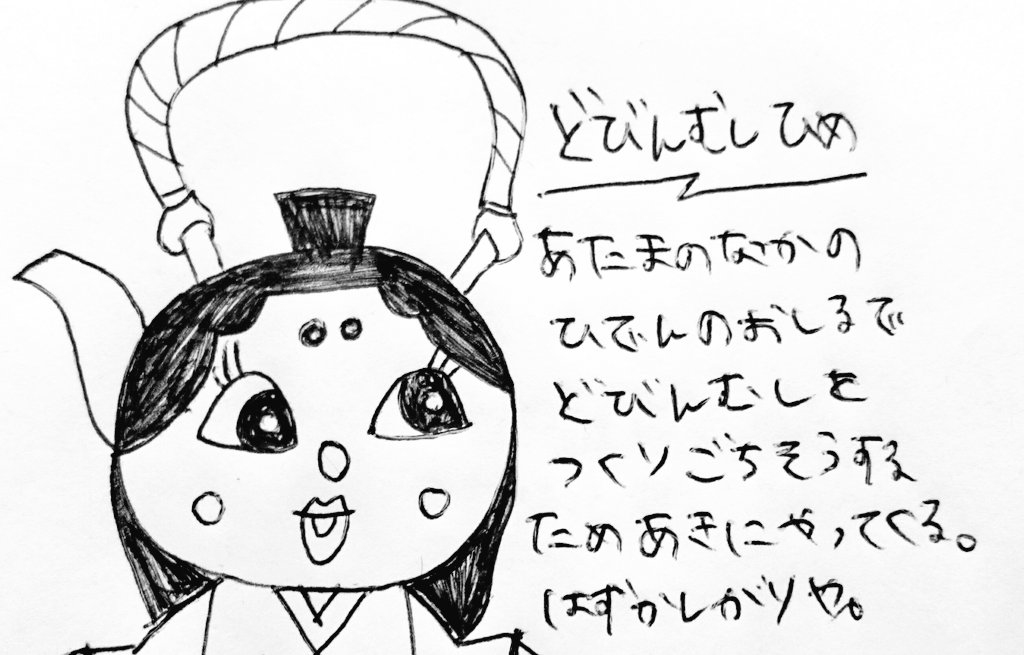 どびんむしひめ
あたまのなかの
ひでんのおしるで
どびんむしを
つくりごちそうする
ためあきにやってくる。
はずかしがりや。